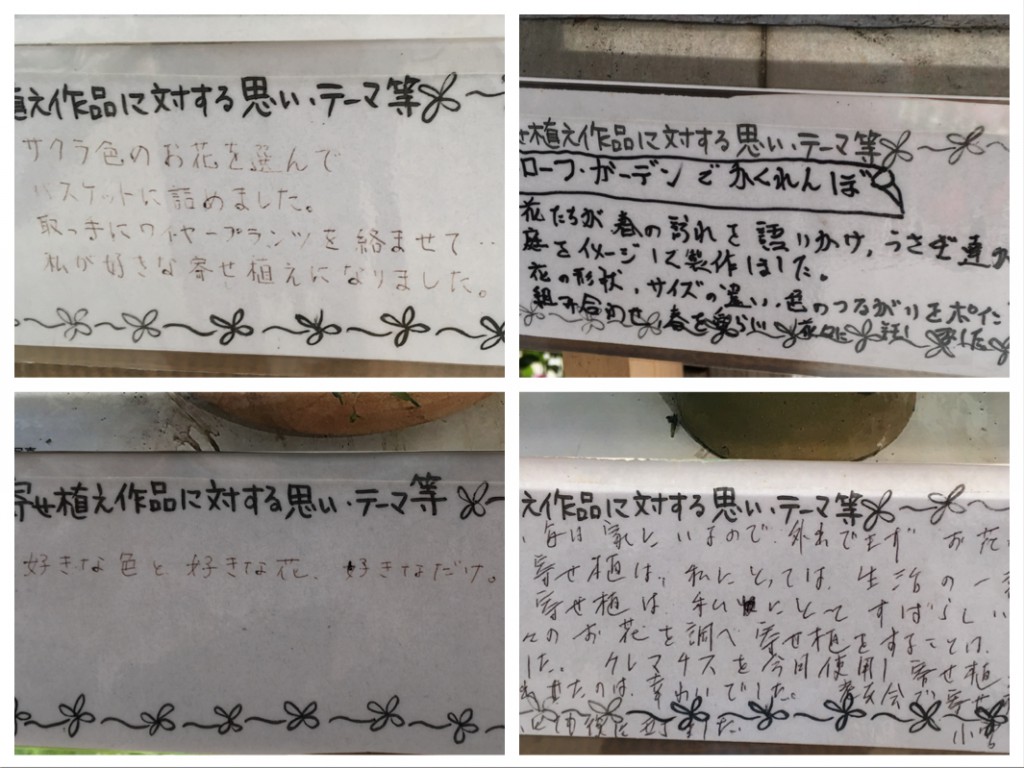 植え作品に対する思い、テーマ等
サクラ色のお花を選んで
バスケットに詰めました。
取っ手にワイヤープランツを絡ませて‥
私が好きな寄せ植えになりました。
せ植え作品に対する思い、テーマ等
ローフ・ガーデンでかくれんぼ
花たちが春の訪れを語りかけ,うさぎ達が
庭をイメージして製作しました。
花の形状、サイズの違い、色のつながりをポイン
組み合わせ、春を
寄せ植え作品に対する思い、テーマ等
好きな色と好きな花、好きなだけ。
え作品に対する思い、テーマ等
母は家にいますので、外出できず お花
寄せ植は、私にとっては、生活の一
寄せ植は 私にとてすばらしい
々のお花を調べ寄せ植をすることは、
した。クレマチスを今回使用し寄せ植
たのは、幸わかでした。